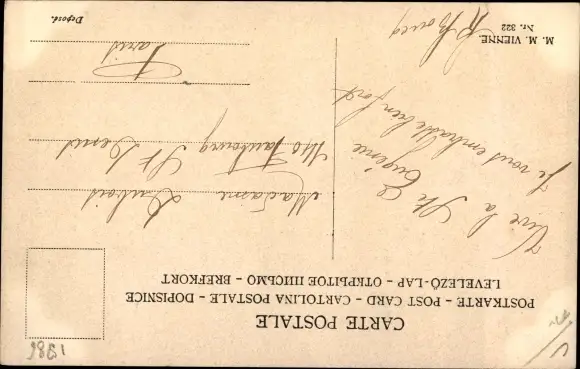 CARTE POSTALE
POSTKARTE – POST CARD – CARTOLINA POSTALE – DOPISNICE
LEVELEZŐ-LAP – ОТКРЫТОЕ ПИСЬМО – BREFKORT
Vive la Ste
Eugénie
Je vous embrasse bien fort
R
M. M. VIENNE.
Nr. 322
Madame
Dubois
110 Faubourg St Denis
Paris
Depost.
1986